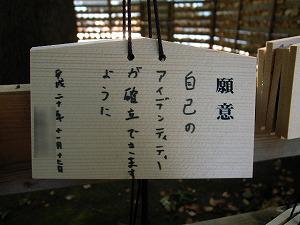 願意
自己の
アイデンティティー
が確立できます
ように
平成二十年十一月十六日